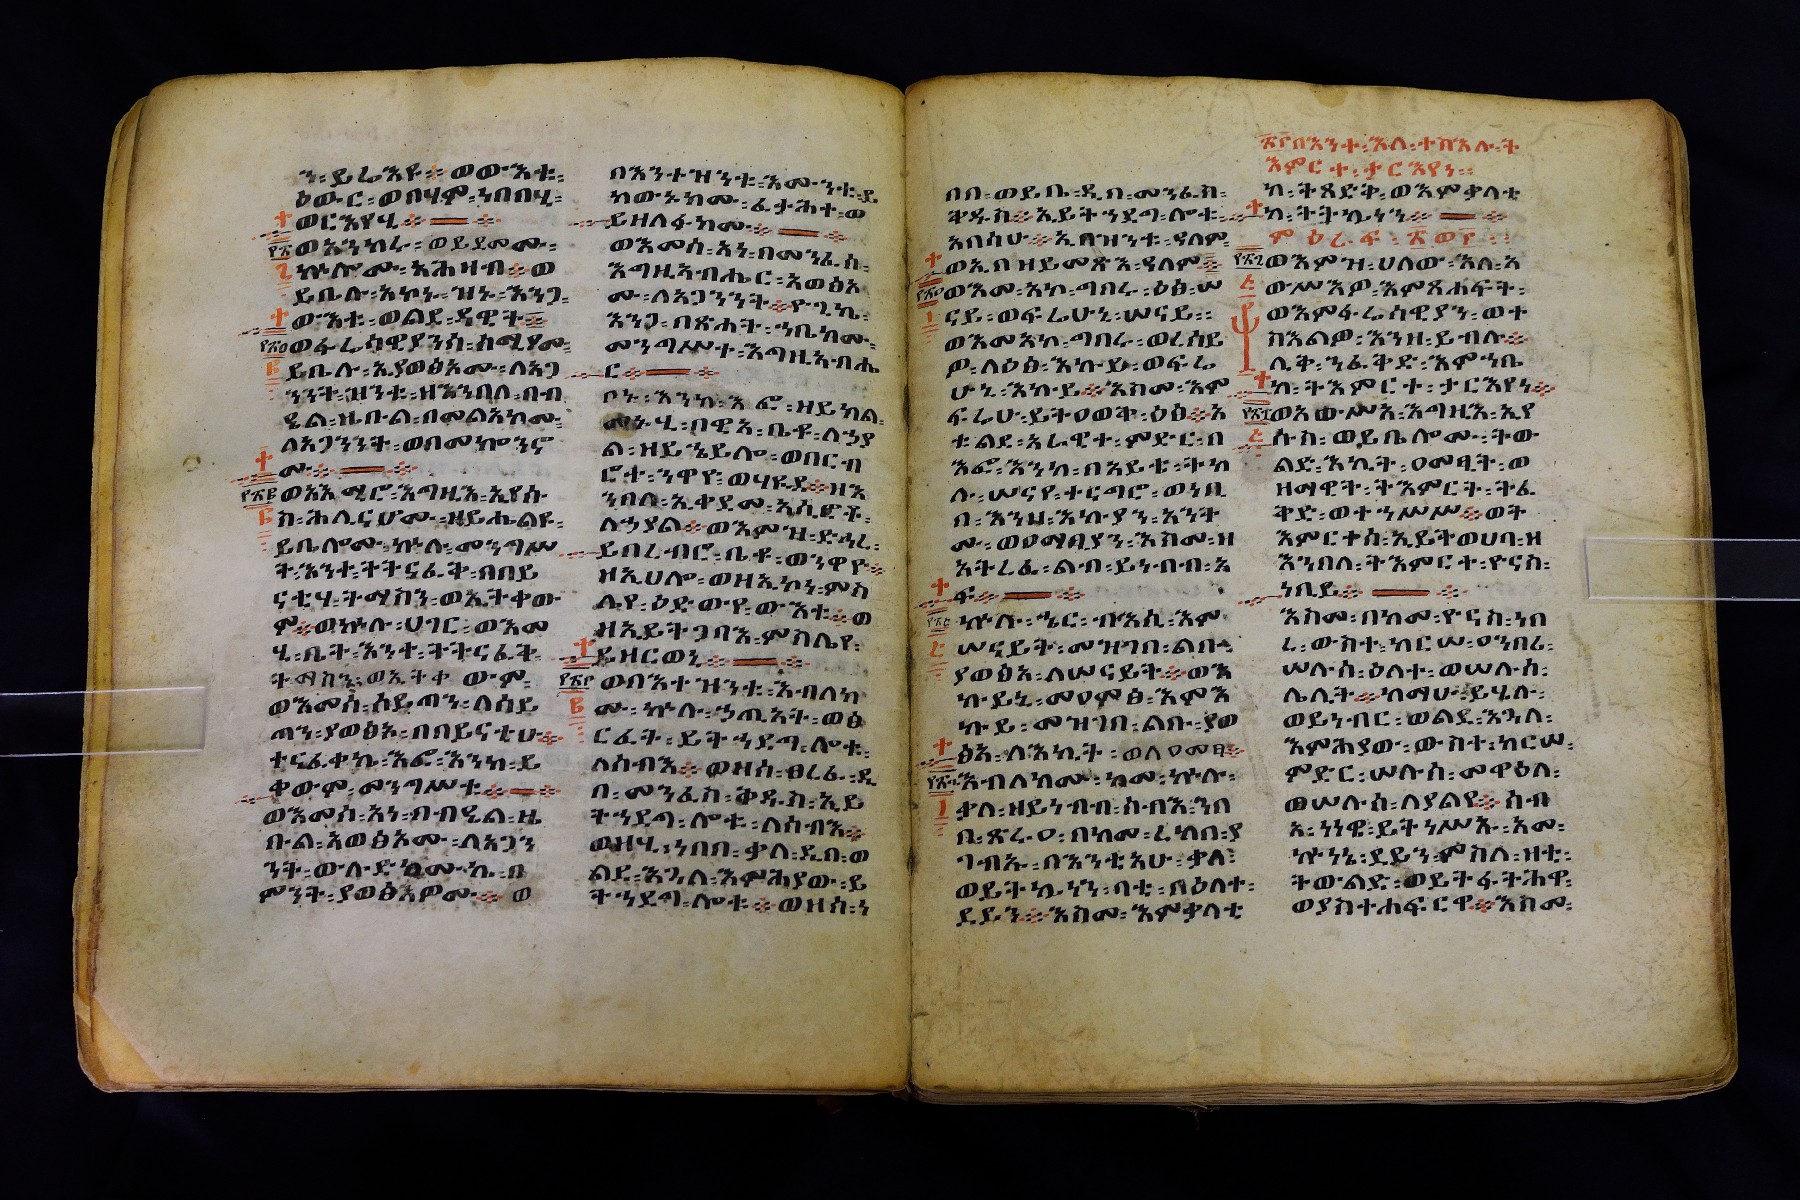 ን፡ ይሬእዩ፡ ወውእቱ፡
ዕውር፡ ወበሃም፡ ነበበሂ፡
ወርእየሂ፡
ወአንከሩ፡ ወይደመሙ፡
ኵሎሙ፡ አሕዛብ፡ ወ
ይቤሉ፡ አኮኑ፡ ዝኑ፡ እንጋ፡
ውእቱ፡ ወልደ፡ ዳዊት፡
ወፈሪሳዊያንሰ፡ ሰሚዖሙ፡
ይቤሉ፡ ኢያወፅአሙ፡ ለአጋ
ንንት፡ ዝንቱ፡ ዘእንበለ፡ በብ
ዔል፡ ዜቡል፡ በመልአኮሙ፡
ለአጋንንት፡ ወበመኰንኖ
ሙ፡
ወአእሚሮ፡ እግዚእ፡ ኢየሱ
ስ፡ ሕሊናሆሙ፡ ዘይሔልዩ፡
ይቤሎሙ፡ ኵሉ፡ መንግሥ
ት፡ እንተ፡ ትትናፈቅ፡ በበይ
ናቲሃ፡ ትማስን፡ ወኢትቀው
ም፡ ወኵሉ፡ ሀገር፡ ወእመ
ሂ፡ ቤት፡ እንተ፡ ትትናፈቅ፡
ትማስን፡ ወኢትቀ ውም፡
ወእመሰ፡ ሰይጣን፡ ለሰይ
ጣን፡ ያወፅእ፡ በበይናቲሁ፡
ተናፈቀኬ፡ እፎ፡ እንከ፡ ይ
ቀውም፡ መንግሥቱ፡
ወእመሰ፡ አነ፡ በብዔል፡ ዜ
ቡል፡ አወፅኦሙ፡ ለአጋን
ንት፡ ውሉድክሙኬ፡ በ
ምንት፡ ያወፅእዎሙ፡ ወ
በእንተዝንቱ፡ እሙንቱ፡ ይ
ከውኑክሙ፡ ፈታሕተ፡ ወ
ይዘለፋክሙ፡
ወእመሰ፡ አነ፡ በመንፈሰ፡
እግዚአብሔር፡ አወፅኦ
ሙ፡ ለአጋንንት፡ ዮጊኬ፡
እንጋ፡ በጽሐት፡ ኀቤክሙ፡
መንግሥተ፡ እግዚአብሔ
ር፡
ቦኑ፡ እንከ፡ እፎ፡ ዘይክል፡
መኑሂ፡ በዊአ፡ ቤቱ፡ ለኃያ
ል፡ ዘይኄይሎ፡ ወበርብ
ሮተ፡ ንዋዩ፡ ወሃይድ፡ ዘእ
ንበለ፡ ኢቀደመ፡ አሲሮቶ፡
ለኃያል፡ ወእምዝ፡ ድኅረ፡
ይበረብሮ፡ ቤቶ፡ ወንዋዮ፡
ዘኢሀሎ፡ ወዘኢኮነ፡ ምስ
ሌየ፡ ዕድውየ፡ ውእቱ፡ ወ
ዘኢይትጋባእ፡ ምስሌየ፡
ይዘርወኒ፡
ወበእንተ ዝንቱ፡ እብለክ
ሙ፡ ኵሉ፡ ኃጢአት፡ ወፅ
ርፈት፡ ይትኀደግ፡ ሎቱ፡
ለሰብእ፡ ወዘሰ፡ ፀረፈ፡ ዲ
በ፡ መንፈስ፡ ቅዱስ፡ ኢይ
ትኀደግ፡ ሎቱ፡ ለሰብእ፡
ወዘሂ፡ ነበበ፡ ቃለ፡ ዲበ፡ ወ
ልደ፡ እጓለ፡ እምሕያው፡ ይ
ትኀደግ፡ ሎቱ፡ ወዘሰ፡ ነ
በበ፡ ወይቤ፡ ዲበ፡ መንፈስ፡
ቅዱስ፡ ኢይትኀደግ፡ ሎቱ፡
አበሳሁ፡ ኢበዝንቱ፡ ዓለም፡
ወኢበዘይመጽእ፡ ዓለም፡
ወእመ፡ አኮ፡ ግበሩ፡ ዕፀ፡ ሠ
ናይ፡ ወፍሬሁኒ፡ ሠናይ፡
ወእመአኮ፡ ግበሩ፡ ወረስይ
ዎ፡ ለዕፅ፡ እኩይ፡ ወፍሬ
ሁኒ፡ እኩይ፡ እስመ፡ እም
ፍሬሁ፡ ይትዐወቅ፡ ዕፅ፡ ኦ
ትውልደ፡ አራዊተ፡ ምድር፡ በ
እፎ፡ እንከ፡ በአይቴ፡ ትክ
ሉ፡ ሠናየ፡ ተናግሮ፡ ወነቢ
በ፡ እንዘ፡ እኩያን፡ አንት
ሙ፡ ወዐማፂያን፡ እስመ፡ ዘ
አትረፈ፡ ልብ፡ ይነብብ፡ አ
ፍ፡
ኵሉ፡ ኄር፡ ብእሲ፡ እም
ሠናይት፡ መዝገበ፡ ልቡ፡
ያወፅእ፡ ለሠናይት፡ ወእ
ኩይኒ፡ መዐምፅ፡ እምእ
ኩይ፡ መዝገበ፡ ልቡ፡ ያወ
ፅእ፡ ለእኪት፡ ወለዐመፃ፡
እብለክሙ፡ ከመ፡ ኵሉ፡
ቃለ፡ ዘይነብብ፡ ሰብእ፡ ንበ
በ፡ ጽሩዐ፡ በከመ፡ ረከበ፡ ያ
ገብኡ፡ በእንቲአሁ፡ ቃለ፡
ወይትኴነን፡ ባቲ፡ በዕለተ፡
ደይን፡ እስመ፡ እምቃላቲ
፳፫በእንተ፡ እለ፡ ተስእሉ፡ ት
እምርተ፡ ታርእየነ፡
ከ፡ ትጸድቅ፡ ወእምቃላቲ
ከ፡ ትትኴነን፡
ምዕራፍ፡
ወእምዝ፡ ሀለው፡ እለ፡ አ
ውሥእዎ፡ እምጸሐፍት፡
ወእምፈሪሳዊያን፡ ወተ
ስእልዎ፡ እንዘ፡ ይብሉ፡
ሊቅ፡ ንፈቅድ፡ እምኀቤ
ከ፡ ትእምርተ፡ ታርእየነ፡
ወአውሥአ፡ እግዚእ፡ ኢየ
ሱስ፡ ወይቤሎሙ፡ ትው
ልድ፡ እኪት፡ ዐመፂት፡ ወ
ዘማዊት፡ ትእምርት፡ ትፈ
ቅድ፡ ወተኀሥሥ፡ ወት
እምርተሰ፡ ኢይትወሀባ፡ ዘ
እንበለ፡ ትእምርተ፡ ዮናስ፡
ነቢይ፡
እስመ፡ በከመ፡ ዮናስ፡ ነበ
ረ፡ ውስተ፡ ከርሠ፡ ዐንበሪ፡
ሠሉስ፡ ዕለተ፡ ወሠሉሰ፡
ሌሊት፡ ከማሁ፡ ይሄሉ፡
ወይነብር፡ ወልደ፡ እጓለ፡
እምሕያው፡ ውስተ፡ ከርሠ፡
ምድር፡ ሠሉስ፡ መዋዕለ፡
ወሠሉሰ፡ ለያልየ፡ ሰብ
አ፡ ነነዌ፡ ይትነሥኡ፡ አመ፡
ኵነኔ፡ ደይን፡ ምስለ፡ ዛቲ፡
ትውልድ፡ ወይትፋትሕዋ፡
ወያስተሐፍርዋ፡ እስመ፡